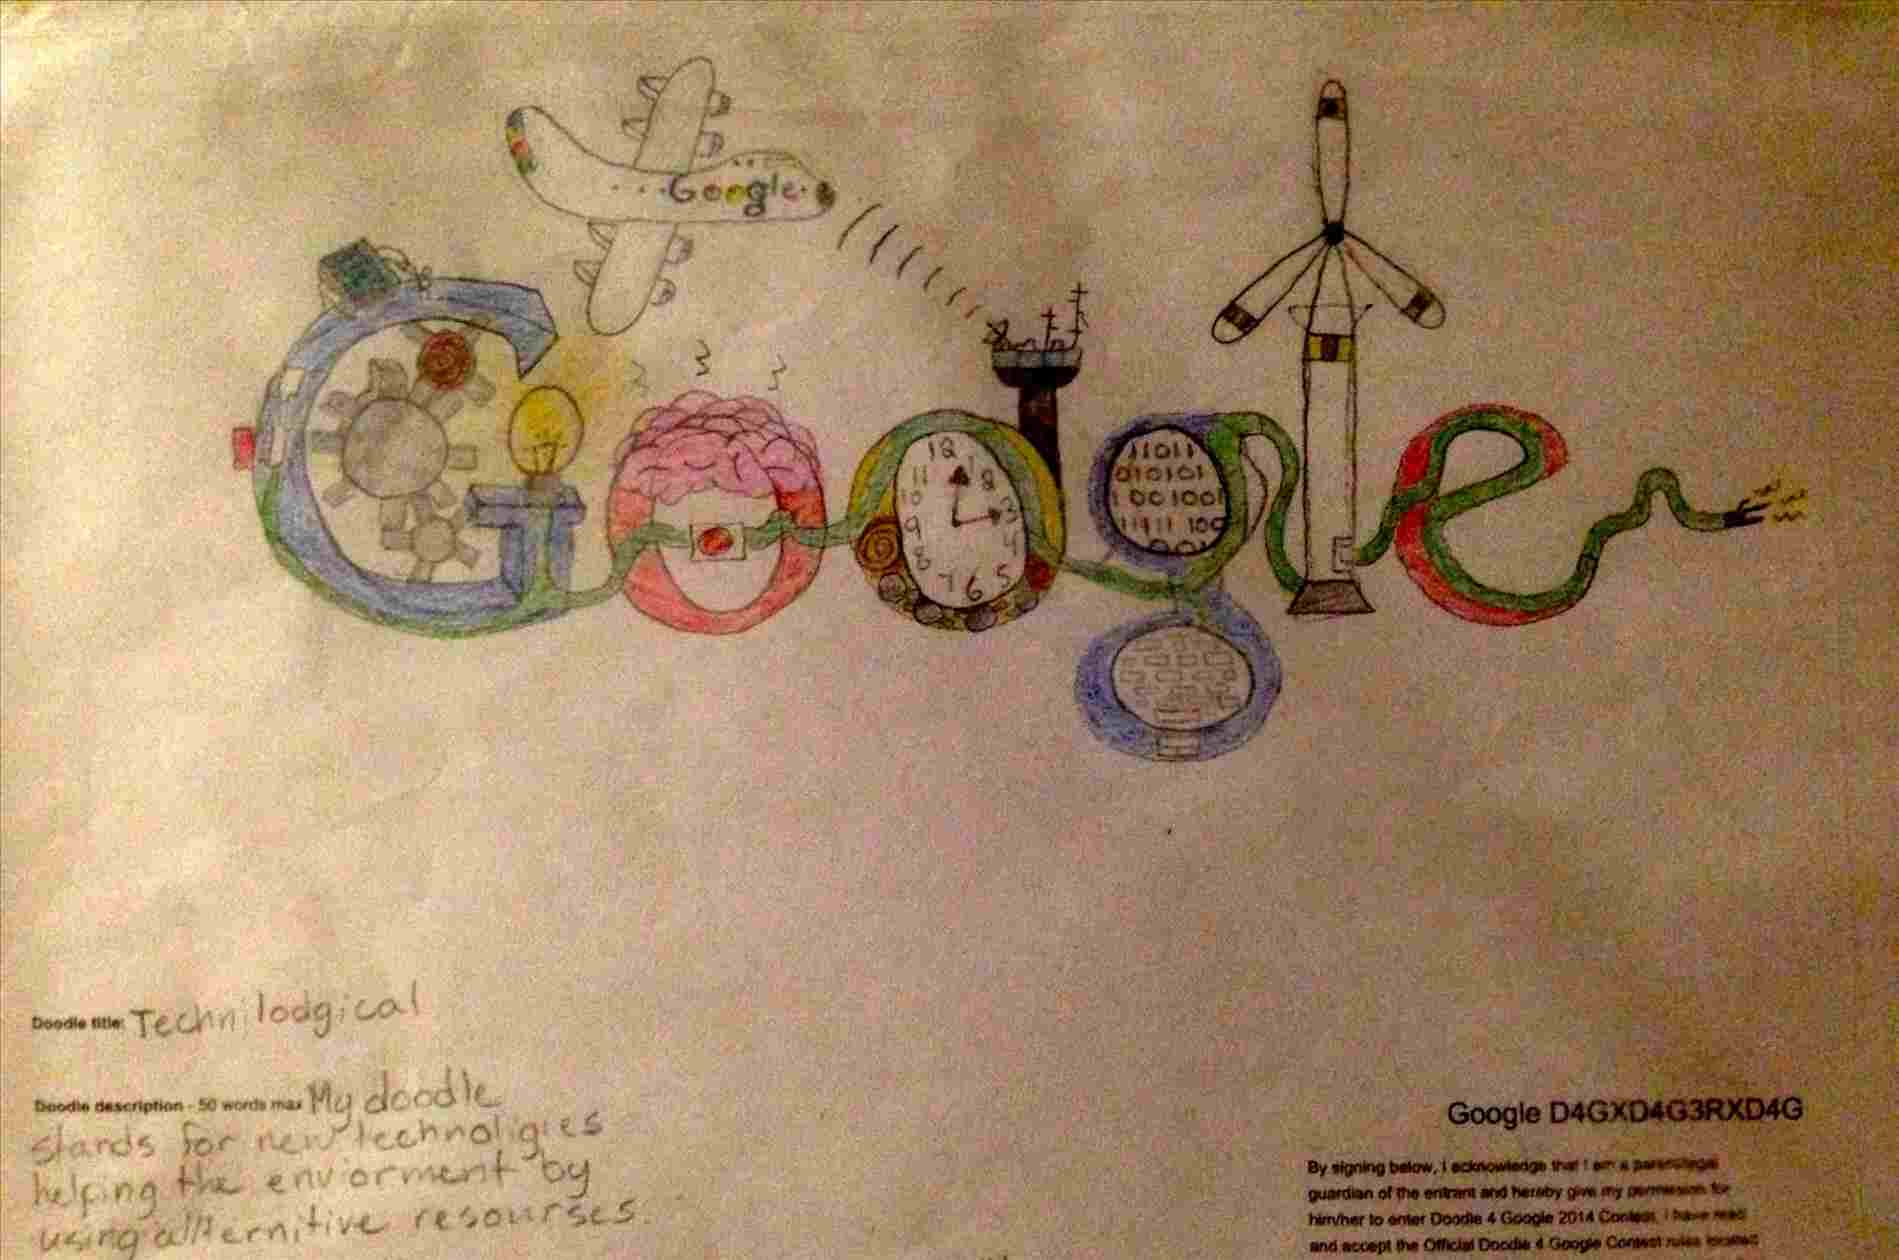 Google
12
11 1
10 2
9 3
8 4
7 6 5
11011
010101
1001001
11911 100
Doodle title: Technilodgical
Doodle description - 50 words max My doodle
stands for new technoligies
helping the enviorment by
using allternitive resourses.
Google D4GXD4G3RXD4G
By signing below, I acknowledge that I am a parent/legal
guardian of the entrant and hereby give my permission for
him/her to enter Doodle 4 Google 2014 Contest. I have read
and accept the Official Doodle 4 Google Contest rules located